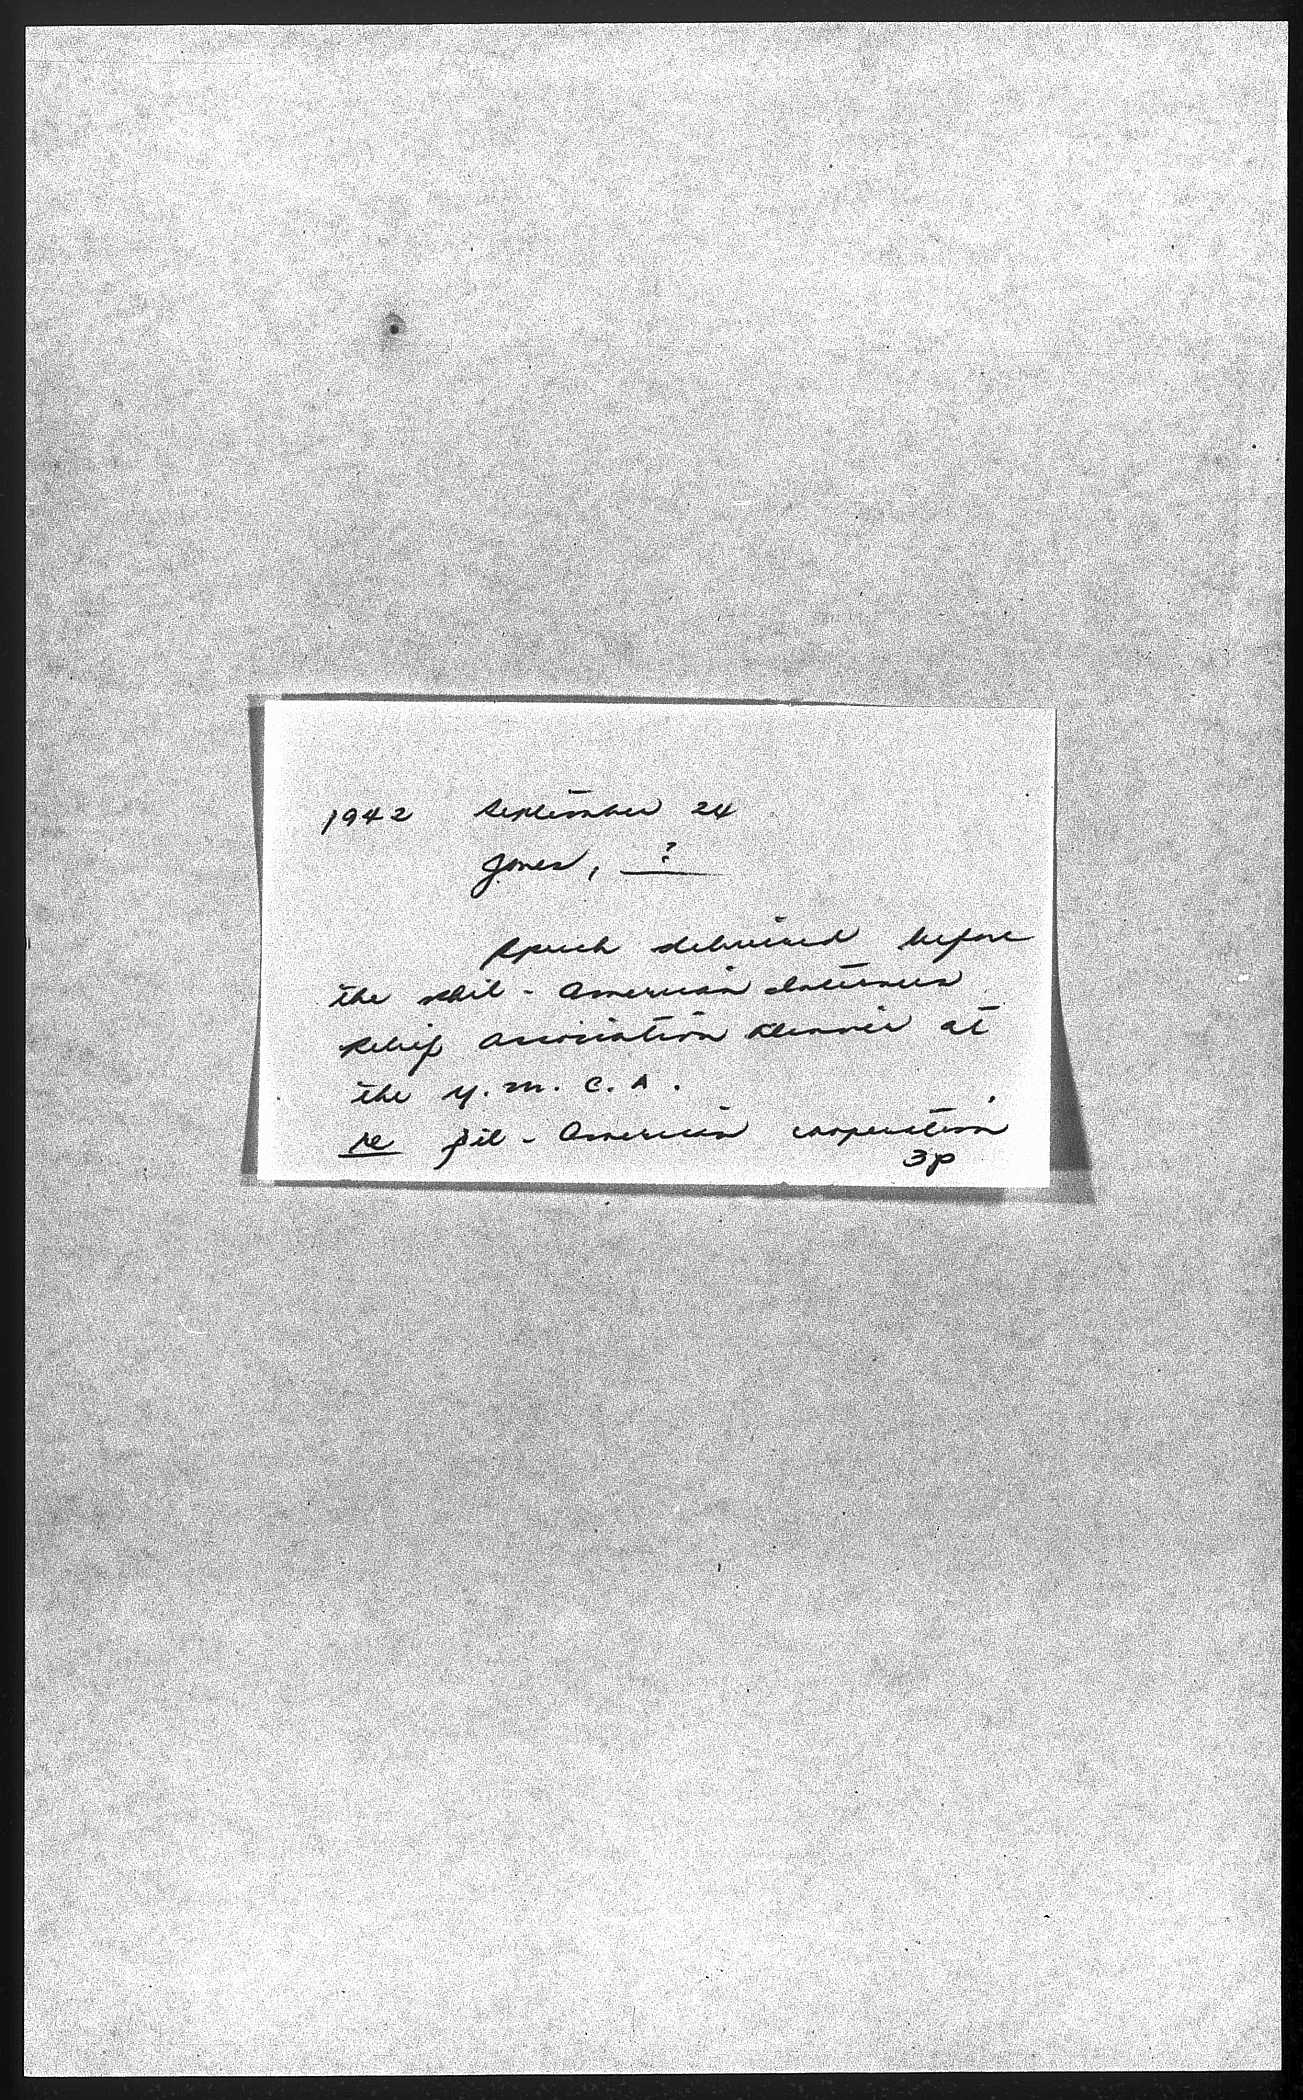 1942 September 24
Jones, ?
Speech delivered before
the Phil - American Internees
Relief Association Dinner at
the Y. M. C. A.
re Fil - American cooperation
3p